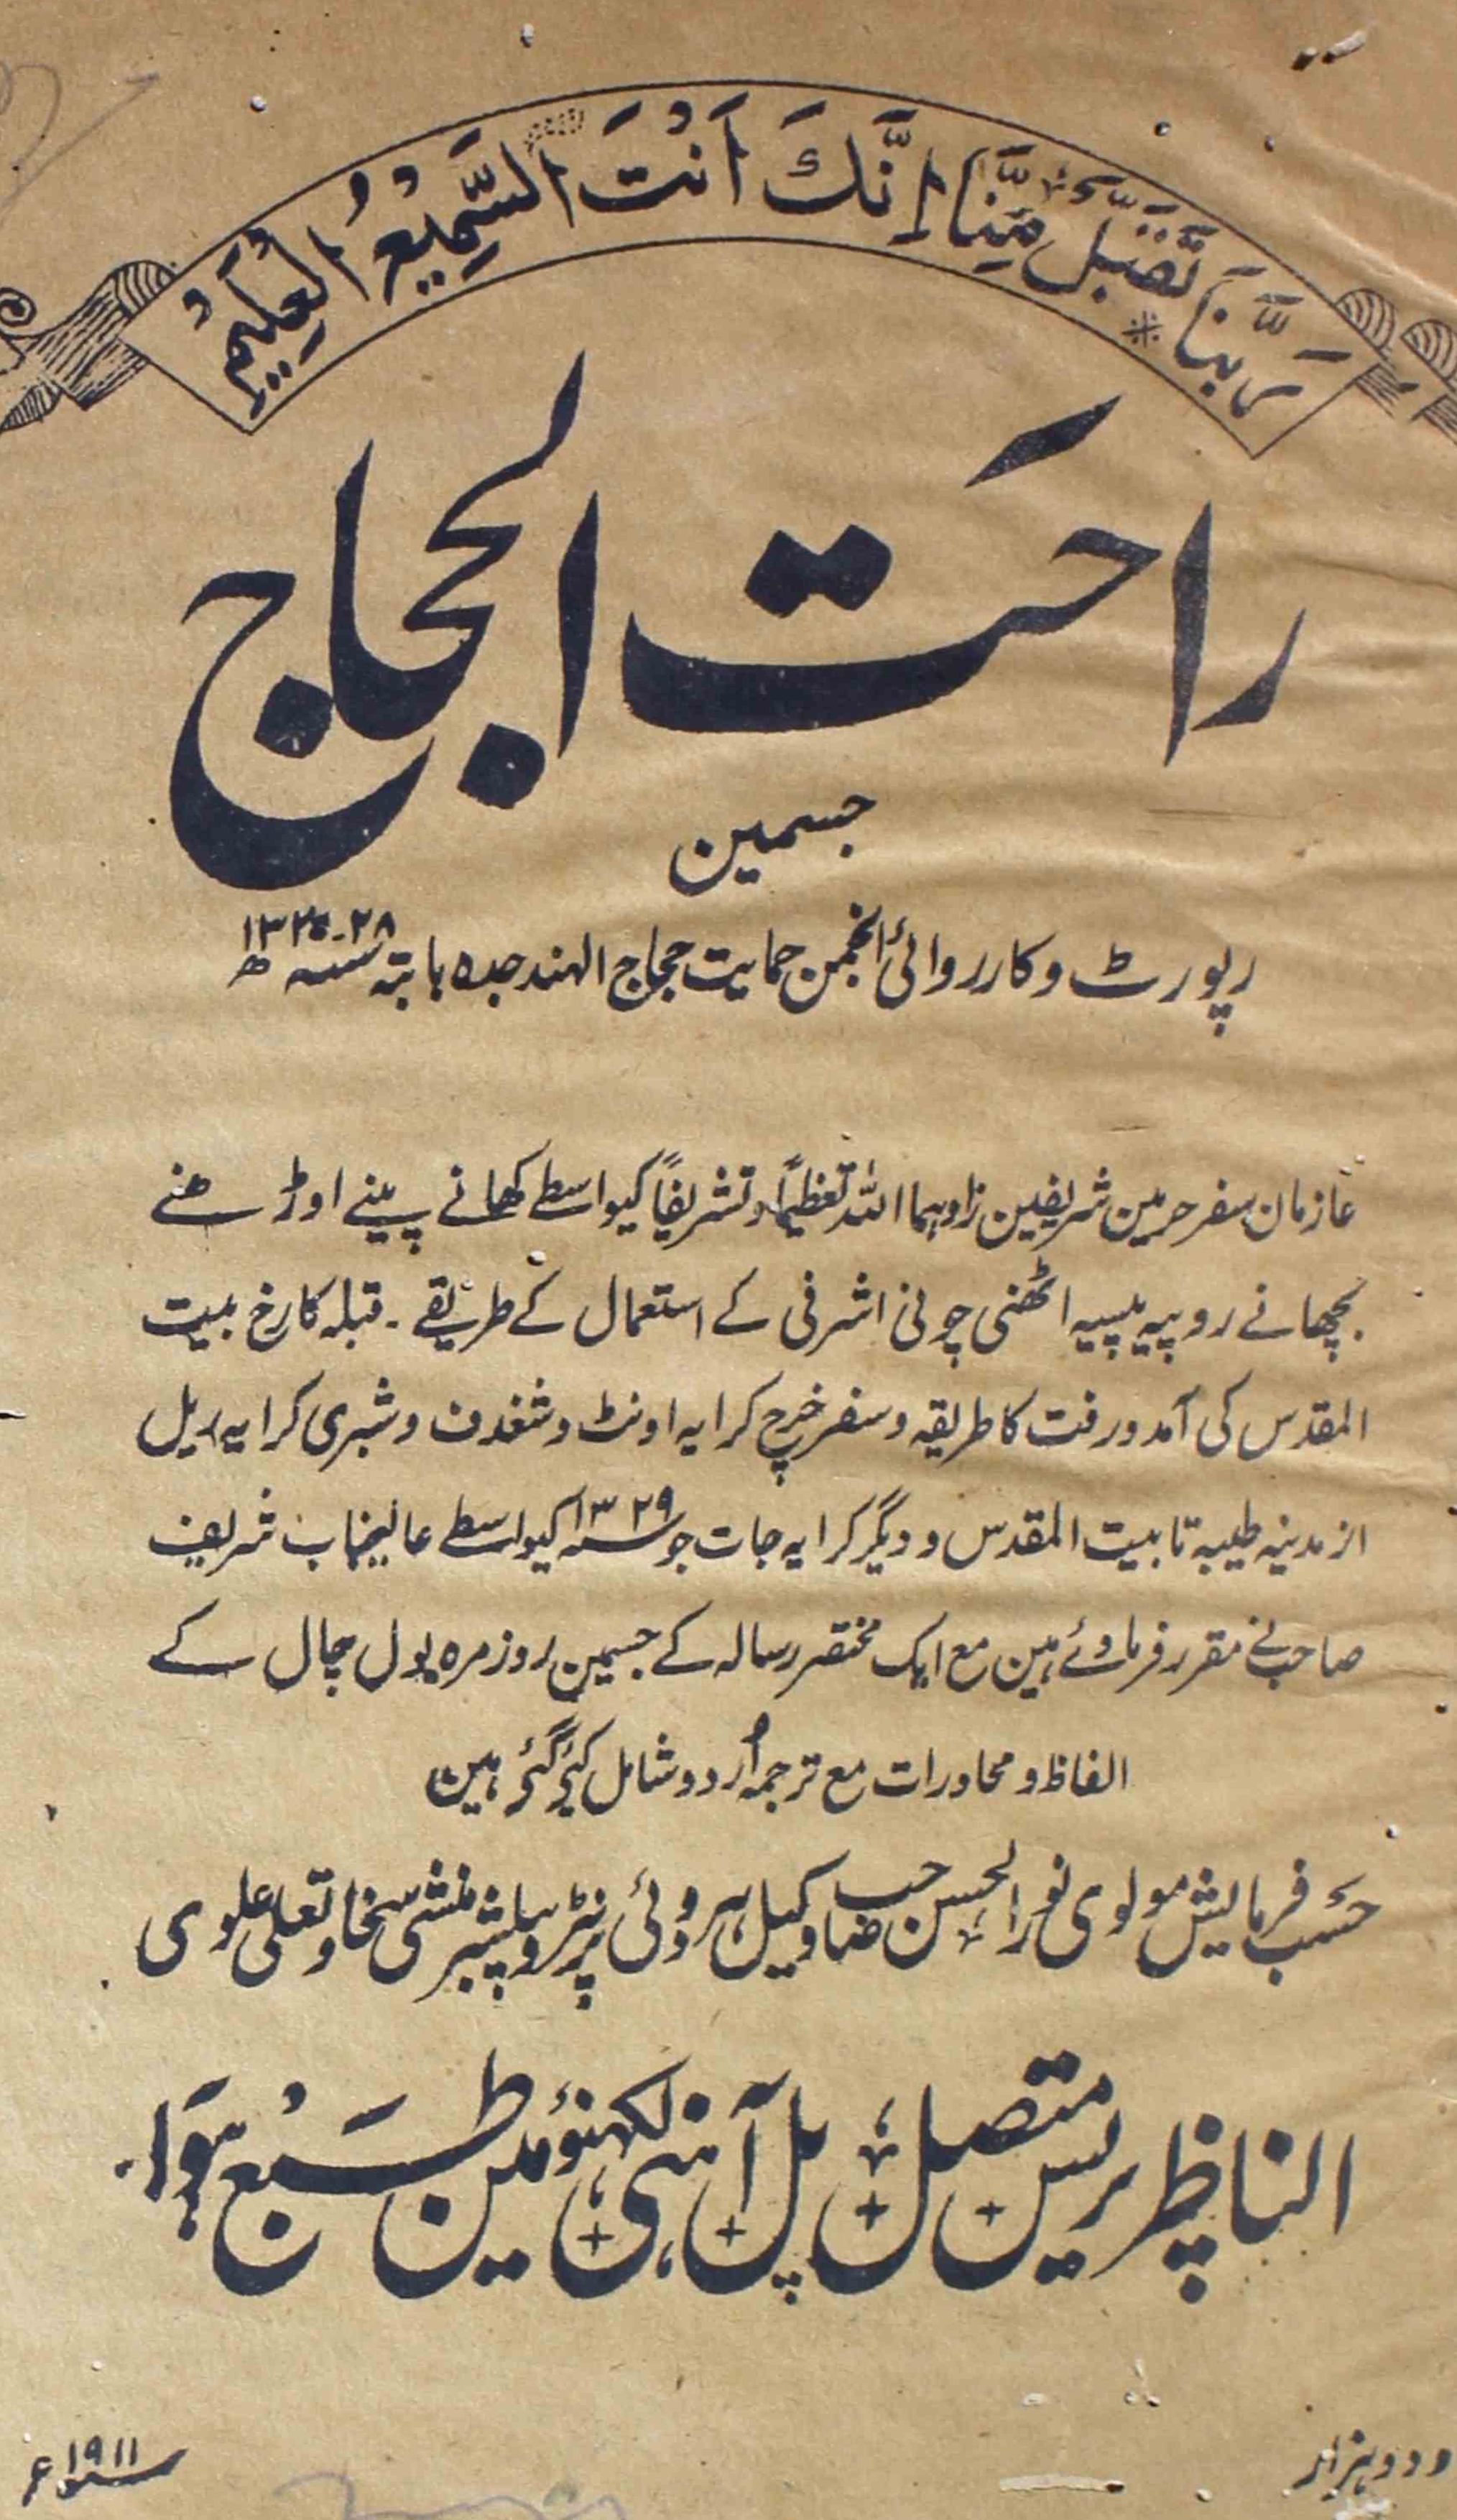 رَبَّنَا تَقَبَّلْ مِنَّا اِنَّكَ اَنْتَ السَّمِيْعُ الْعَلِيْمُ
راحت الحجاج
جسمین
رپورٹ وکارروائی انجمن حمایت حجاج الہند جدہ بابتہ سنہ ۲۸-۱۳۲۷ھ
عازمان سفر حرمین شریفین زادہما اللہ تعظیماً وتشریفاً کیواسطے کھانے پینے اوڑھنے
بچھانے روپیہ پیسیہ اٹھنی چونی اشرفی کے استعمال کے طریقے۔ قبلہ کا رخ بیت
المقدس کی آمد ورفت کا طریقہ وسفر خرچ کرایہ اونٹ وشغدف وشبری کرایہ ریل
از مدینہ طیبہ تا بیت المقدس ودیگر کرایہ جات جو سنہ ۱۳۲۹ کیواسطے عالیجناب شریف
صاحب نے مقرر فرمائے ہین مع ایک مختصر رسالہ کے جسمین روزمرہ بول چال کے
الفاظ ومحاورات مع ترجمہ اُردو شامل کیے گئے ہین
حَسب فرمایش مولوی نور الحسن صاحب وکیل ہردوئی پرنٹر وپبلشر منشی سخاوتعلی علوی
الناظر پریس متصل پل آہنی لکھنؤ مین طبع ہوَا۔
دو ہزار
سنہ ۱۹۱۱ء